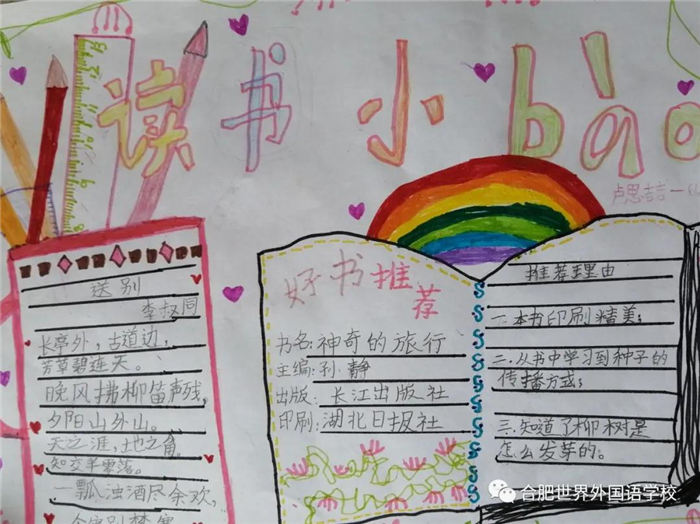 读书小bào
卢思吉一
送别
李叔同
长亭外,古道边,
芳草碧连天。
晚风拂柳笛声残,
夕阳山外山。
天之涯,地之角,
知交半零落。
一瓢浊酒尽余欢,
好书推荐
书名:神奇的旅行
主编:孙静
出版:长江出版社
印刷:湖北日报社
推荐理由
一.本书印刷精美;
二.从书中学习到种子的
传播方式;
三.知道了柳树是
怎么发芽的。
合肥世界外国语学校